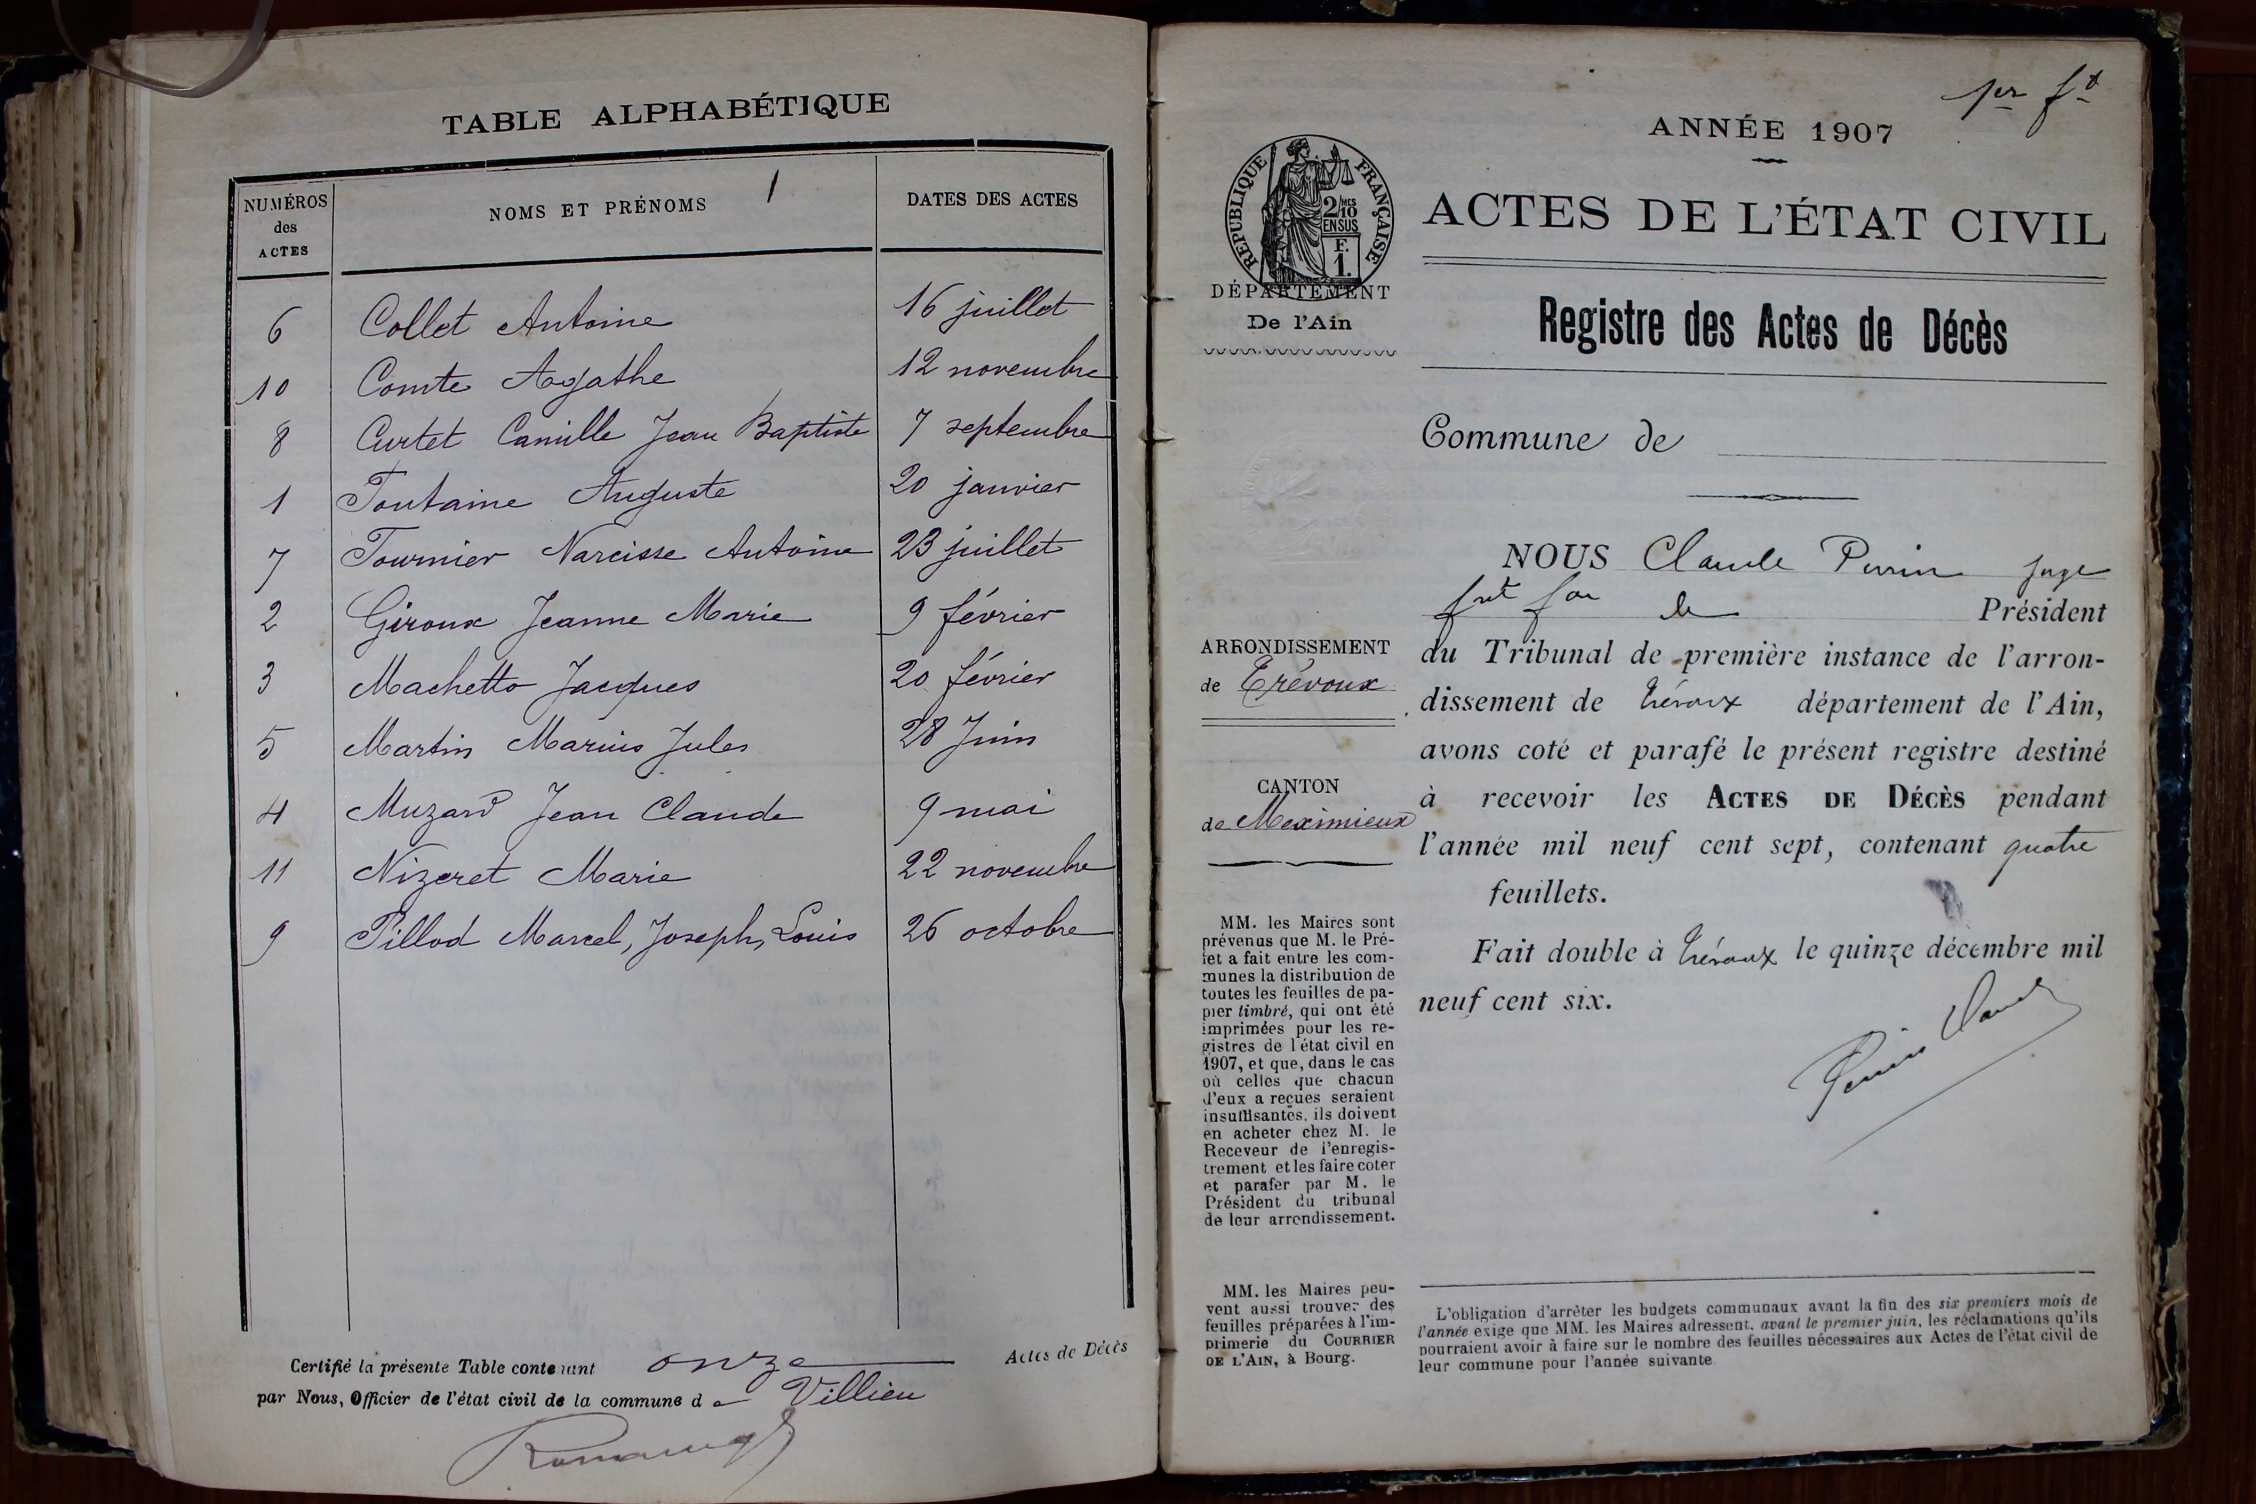 TABLE ALPHABÉTIQUE
NUMÉROS des ACTES NOMS ET PRÉNOMS 1 DATES DES ACTES
6 Collet Antoine 16 juillet
10 Comte Agathe 12 novembre
8 Curtet Camille Jean Baptiste 7 septembre
1 Fontaine Auguste 20 janvier
7 Fournier Narcisse Antoine 23 juillet
2 Giroux Jeanne Marie 9 février
3 Machetto Jacques 20 février
5 Martin Marius Jules 28 Juin
4 Muzard Jean Claude 9 mai
11 Nizeret Marie 22 novembre
9 Pillod Marcel, Joseph, Louis 26 octobre
Certifié la présente Table contenant onze Actes de Décès
par Nous, Officier de l'état civil de la commune de Villieu
1er ft
ANNÉE 1907
RÉPUBLIQUE FRANÇAISE
2/10 MES
EN SUS
F.
1.
ACTES DE L'ÉTAT CIVIL
DÉPARTEMENT
De l'Ain
Registre des Actes de Décès
Commune de
NOUS Claude Perrin juge
le Président
ARRONDISSEMENT
de Trévoux
du Tribunal de première instance de l'arron-
dissement de Trévoux département de l'Ain,
avons coté et parafé le présent registre destiné
CANTON
de Meximieux
à recevoir les ACTES DE DÉCÈS pendant
l'année mil neuf cent sept, contenant quatre
feuillets.
Fait double à Trévoux le quinze décembre mil
neuf cent six.
Perrin Claude
MM. les Maires sont
prévenus que M. le Pré-
fet a fait entre les com-
munes la distribution de
toutes les feuilles de pa-
pier timbré, qui ont été
imprimées pour les re-
gistres de l'état civil en
1907, et que, dans le cas
où celles que chacun
d'eux a reçues seraient
insuffisantes, ils doivent
en acheter chez M. le
Receveur de l'enregis-
trement et les faire coter
et parafer par M. le
Président du tribunal
de leur arrondissement.
MM. les Maires peu-
vent aussi trouver des
feuilles préparées à l'im-
primerie du COURRIER
DE L'AIN, à Bourg.
L'obligation d'arrêter les budgets communaux avant la fin des six premiers mois de
l'année exige que MM. les Maires adressent, avant le premier juin, les réclamations qu'ils
pourraient avoir à faire sur le nombre des feuilles nécessaires aux Actes de l'état civil de
leur commune pour l'année suivante